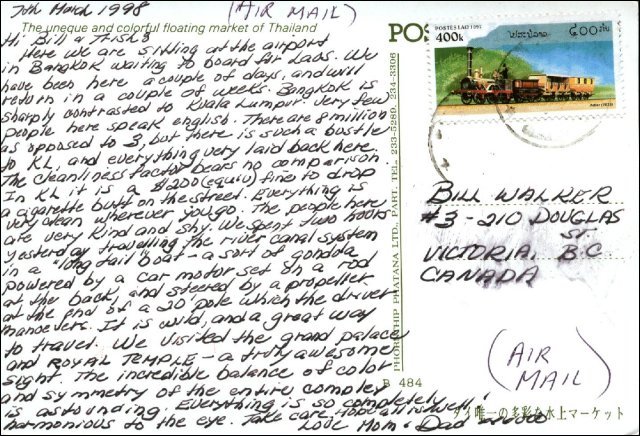 7th March 1998 (AIR MAIL)
The uneque and colorful floating market of Thailand
Hi Bill & Trish!
Here we are sitting at the airport
in Bangkok waiting to board for Laos. We
have been here a couple of days, and will
return in a couple of weeks. Bangkok is
sharply contrasted to Kuala Lumpur. Very few
people here speak english. There are 8 million
as opposed to 3, but there is such a bustle
to KL, and everything very laid back here.
The cleanliness factor bears no comparison.
In KL it is a $200 (equiv) fine to drop
a cigarette butt on the street. Everything is
very clean wherever you go. The people here
are very kind and shy. We spent two hours
yesterday travelling the river canal system
in a "long tail" boat - a sort of gondola
powered by a car motor set on a rod
at the back, and steered by a propeller
at the end of a 20' pole which the driver
manoevers. It is wild, and a great way
to travel. We visited the grand palace
and ROYAL TEMPLE - a truly awesome
sight. The incredible balance of color
and symmetry of the entire complex
is astounding. Everything is so completely
harmonious to the eye. Take care. Hope all is well!
Love Mom & Dad
PHORNTHIP PHATANA LTD. PART. TEL. 233-5280, 234-3306
POS
POSTES LAO 1997
400k
ໄປສະນີລາວ
BILL WALKER
#3-210 DOUGLAS
ST.
VICTORIA, B.C
CANADA
(AIR
MAIL)
B 484
タイ唯一の多彩な水上マーケット